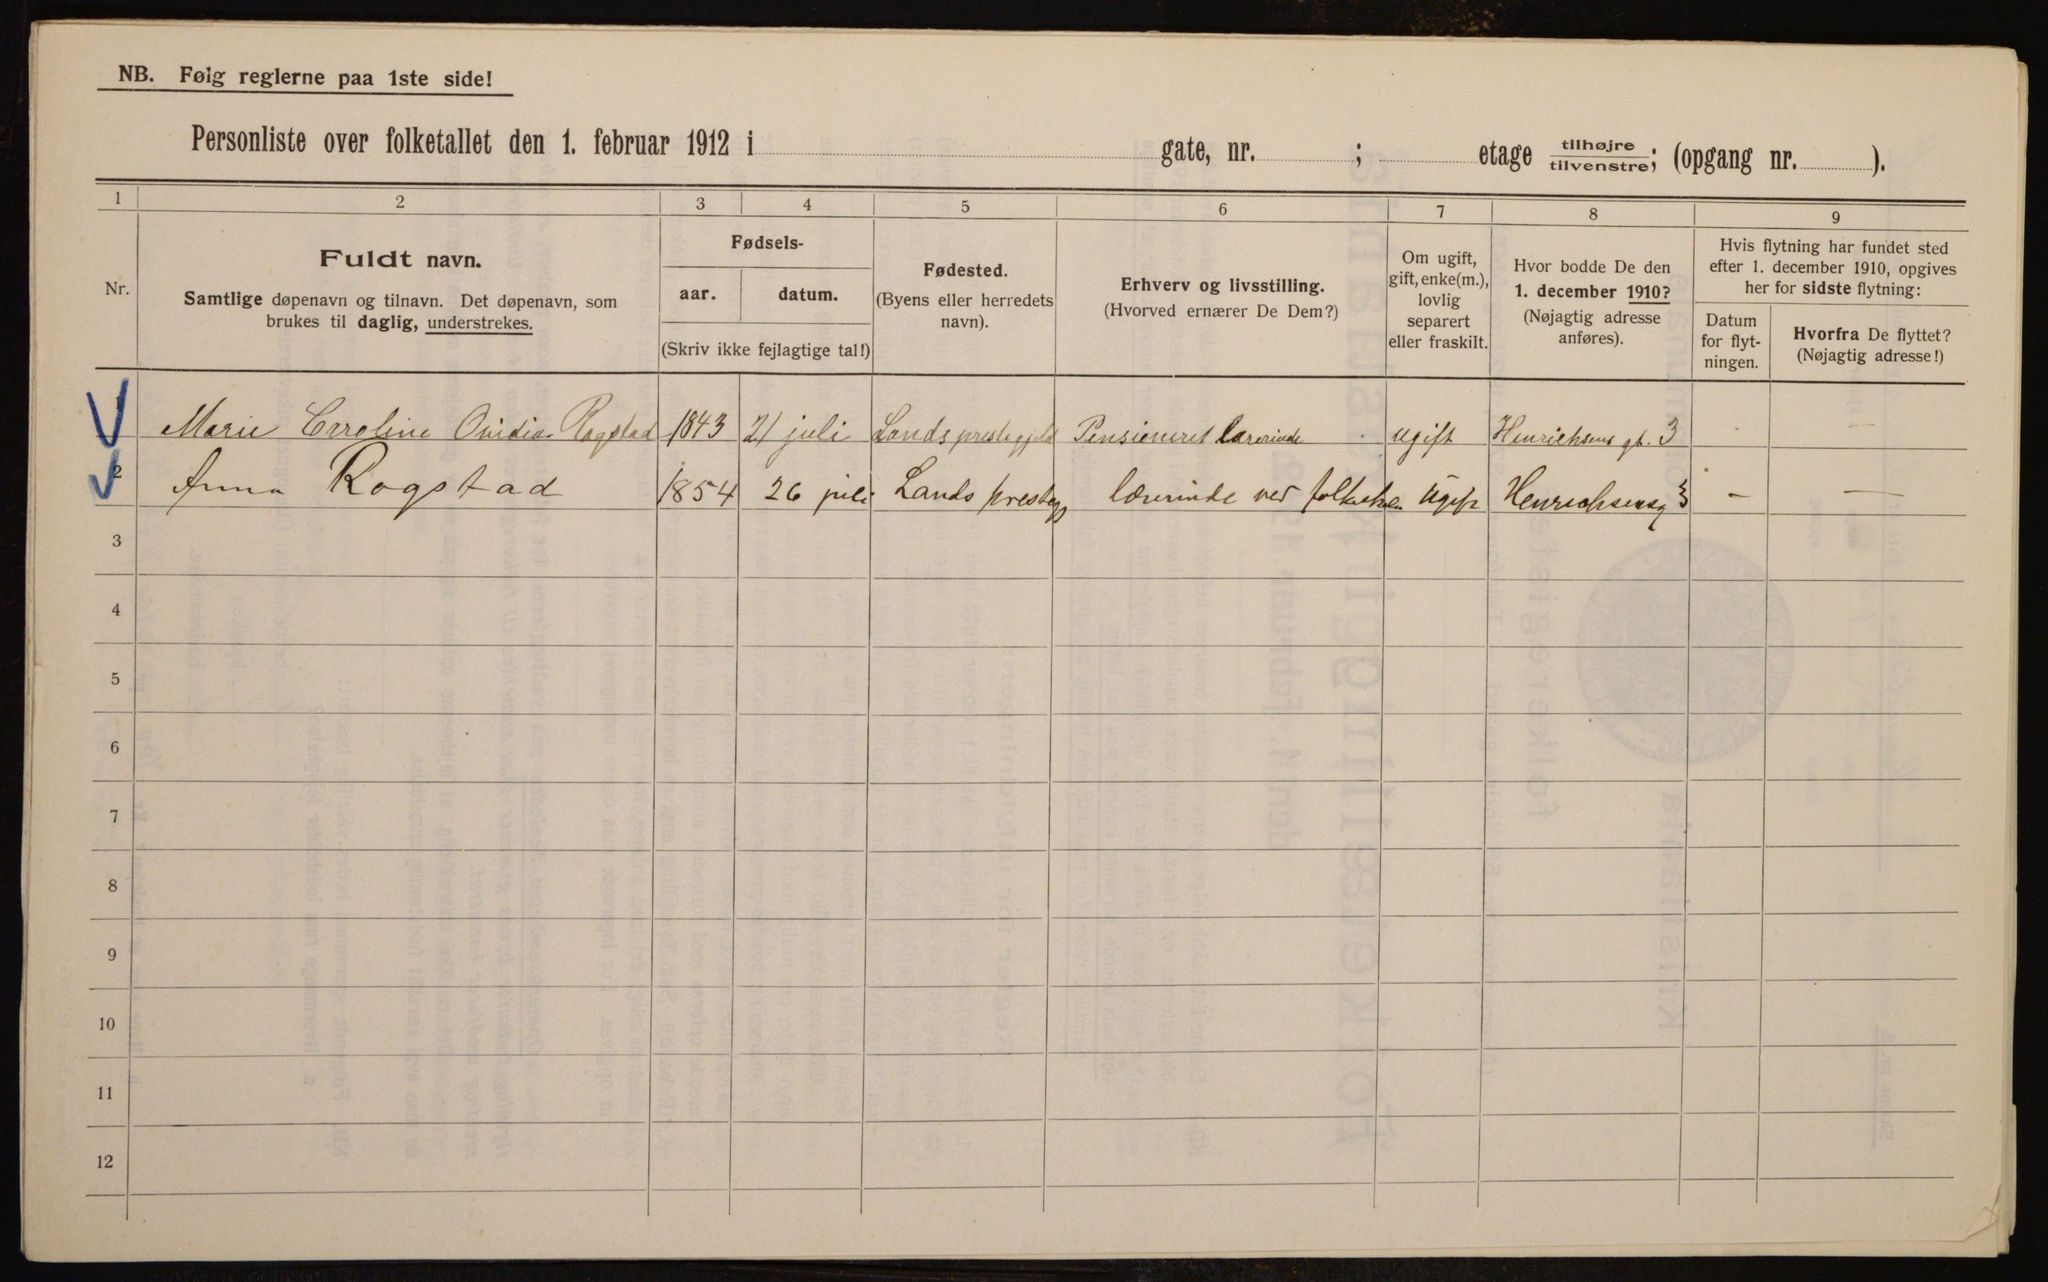 NB. Følg reglerne paa 1ste side!
Personliste over folketallet den 1. februar 1912 i gate, nr. ; etage tilhøjre/tilvenstre; (opgang nr. ).
1 2 3 4 5 6 7 8 9
Nr.
Fuldt navn.
Samtlige døpenavn og tilnavn. Det døpenavn, som
brukes til daglig, understrekes.
Fødsels-
aar. datum.
(Skriv ikke fejlagtige tal!)
Fødested.
(Byens eller herredets
navn).
Erhverv og livsstilling.
(Hvorved ernærer De Dem?)
Om ugift,
gift, enke(m.),
lovlig
separert
eller fraskilt.
Hvor bodde De den
1. december 1910?
(Nøjagtig adresse
anføres).
Hvis flytning har fundet sted
efter 1. december 1910, opgives
her for sidste flytning:
Datum
for flyt-
ningen.
Hvorfra De flyttet?
(Nøjagtig adresse!)
1 Marie Caroline Ovidia Rogstad 1843 21 juli Lands prestegjeld Pensioneret lærerinde ugift Henrichsens gt. 3
2 Anna Rogstad 1854 26 juli Lands presteg lærerinde ved Ugift Henrichsensg 3 — —
3
4
5
6
7
8
9
10
11
12